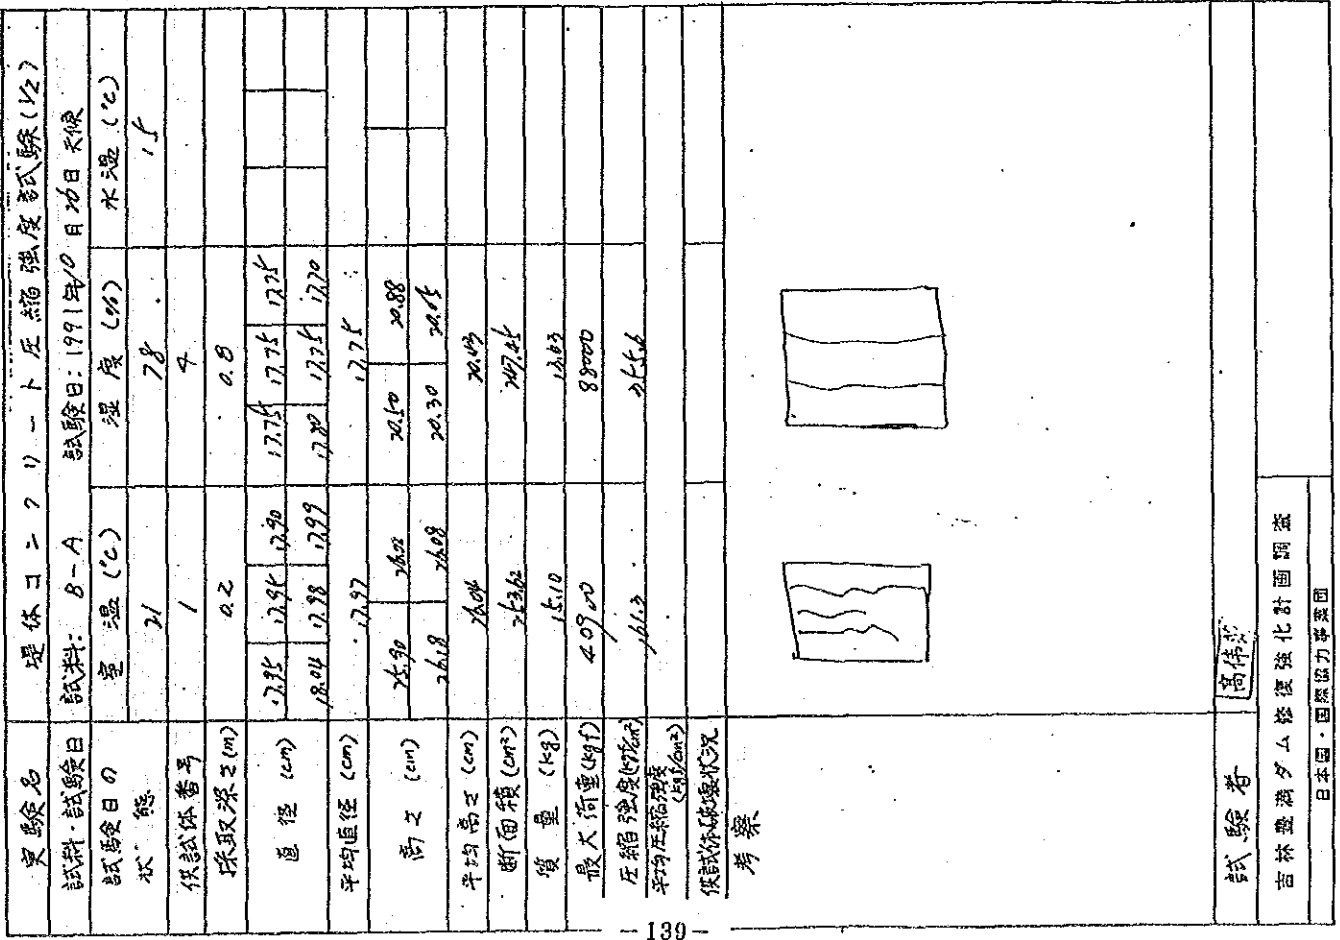 実験名 堤体コンクリート圧縮強度試験(1/2)
試料・試験日 試料: 8-A 試験日: 1991年10月26日 天候
試験日の状態 室温 (℃) 湿度 (%) 水温 (℃)
21 78 15
供試体番号 1 4
採取深さ(m) 0.2 0.8
直径 (cm) 17.95 17.95 17.90 17.75 17.75 17.75
18.04 17.98 17.99 17.80 17.75 17.70
平均直径 (cm) 17.97 17.75
高さ (cm) 25.90 26.02 20.50 20.88
26.18 26.08 20.30 20.05
平均高さ (cm) 26.04 20.43
断面積 (cm²) 253.62 247.45
質量 (kg) 15.10
最大荷重(kgf) 40900 88000
圧縮強度(kgf/cm²) 161.3
平均圧縮強度(kgf/cm²)
供試体破壊状況
考察
試験者 高偉
吉林豊満ダム修復強化計画調査
日本国・国際協力事業団
-139-